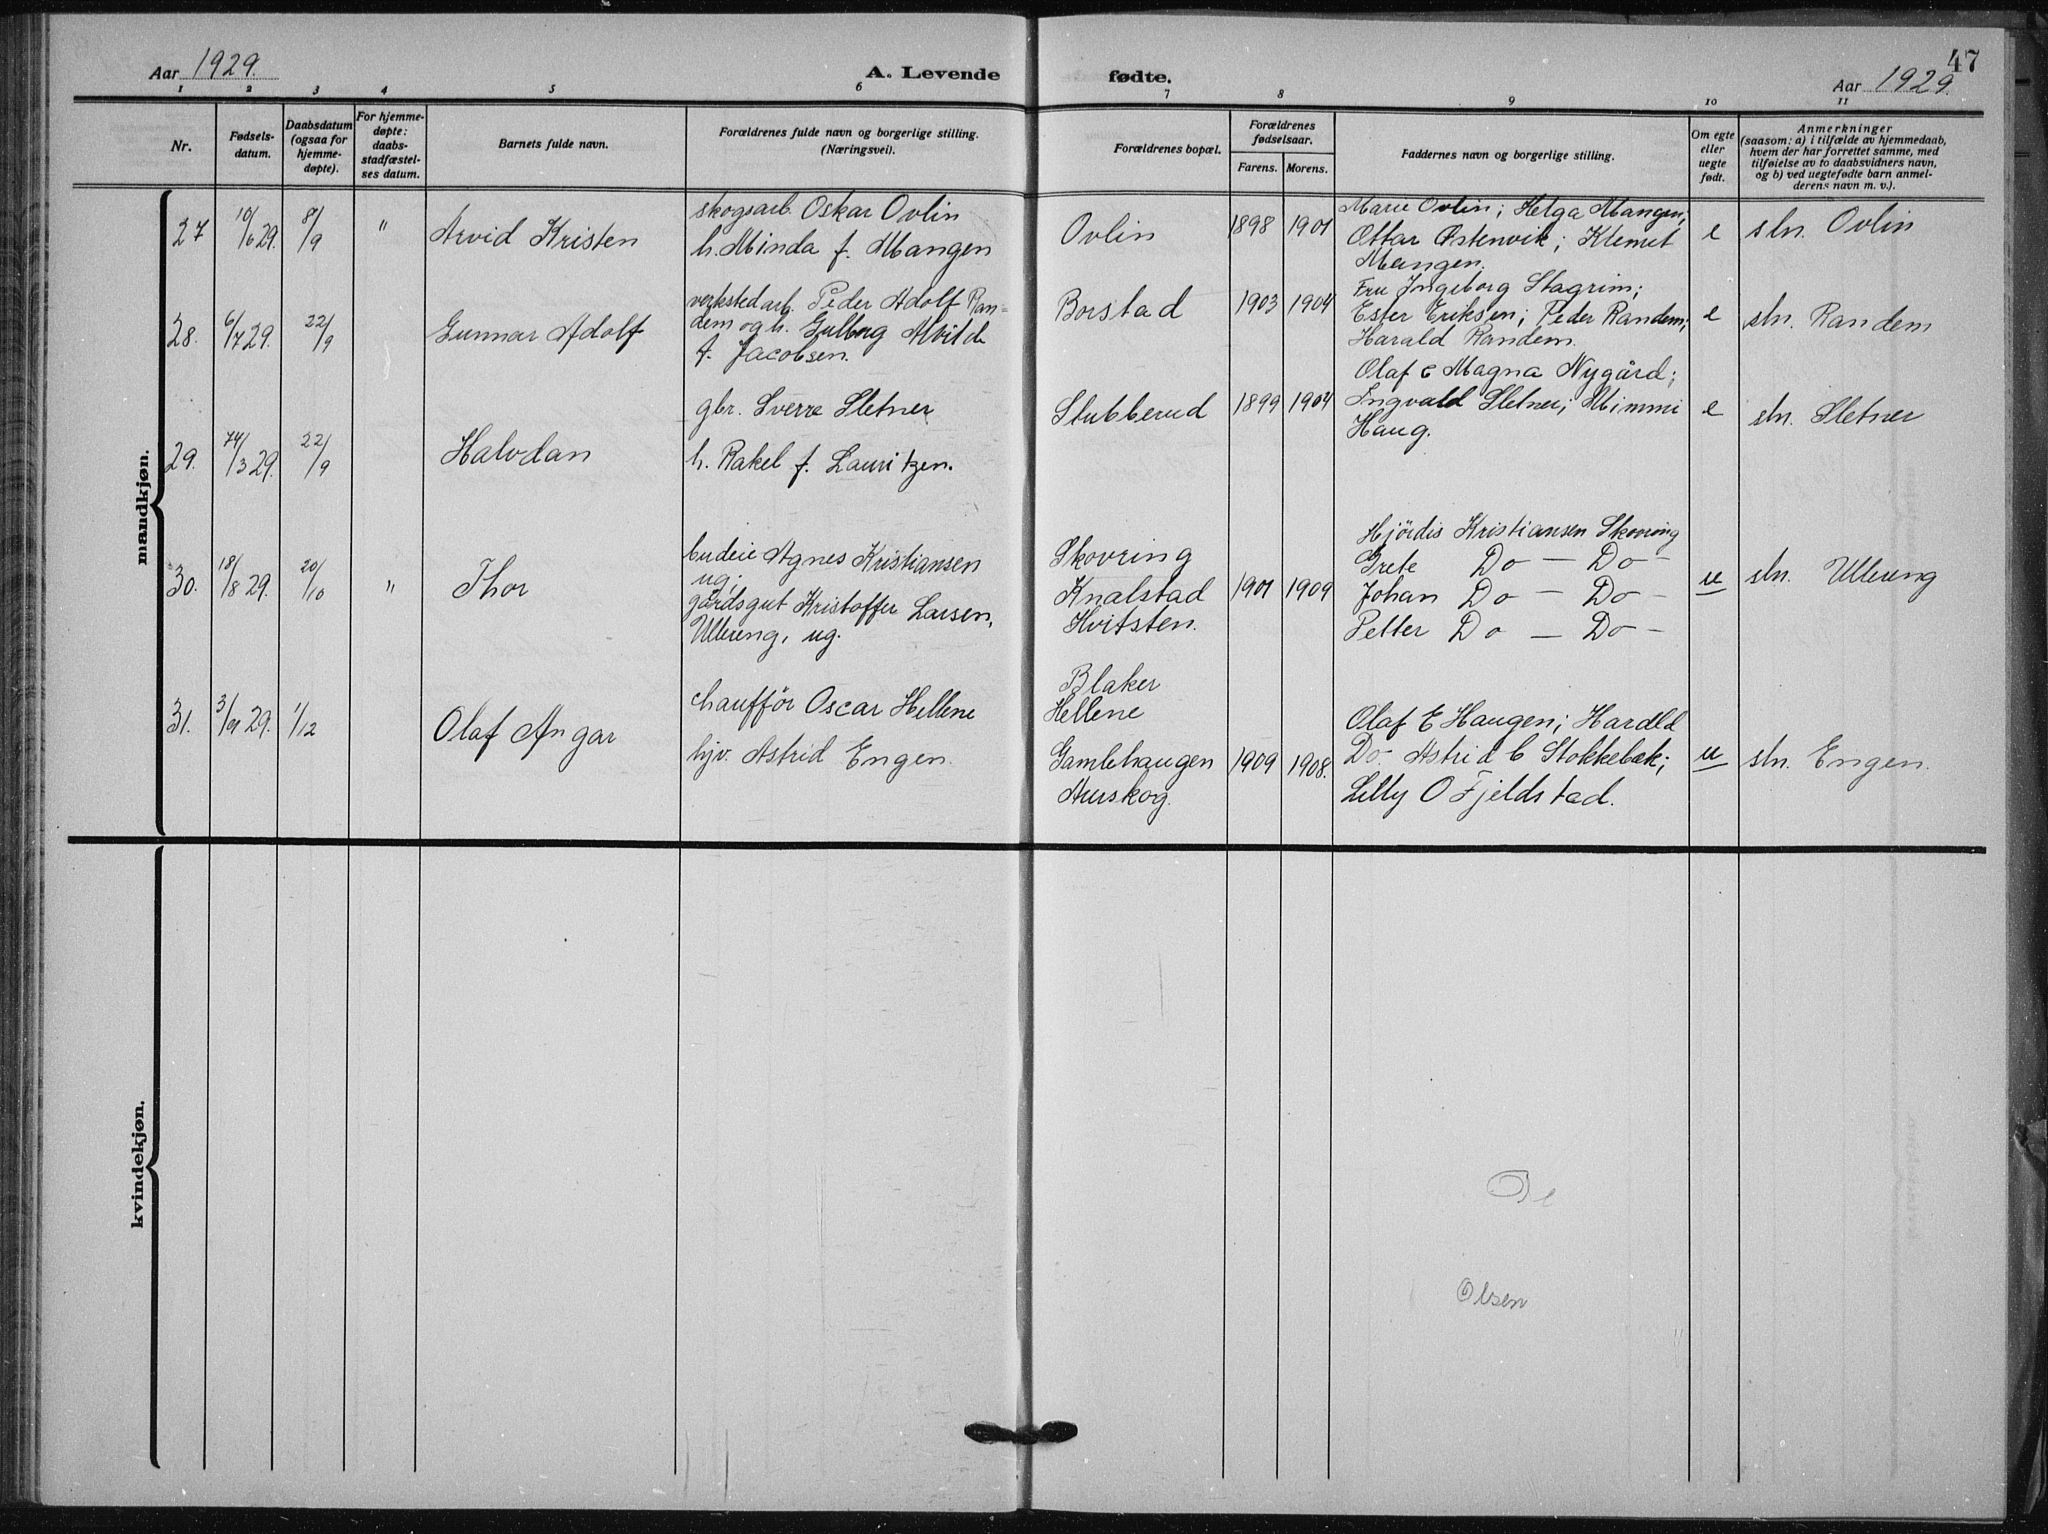 Aar 1929.
A. Levende fødte.
47
Aar 1929.
1 2 3 4 5 6 7 8 9 10 11
Nr.
Fødsels-
datum.
Daabsdatum
(ogsaa for
hjemme-
døpte).
For hjemme-
døpte:
daabs-
stadfæstel-
ses datum.
Barnets fulde navn.
Forældrenes fulde navn og borgerlige stilling.
(Næringsvei).
Forældrenes bopæl.
Forældrenes
fødselsaar.
Farens. Morens.
Faddernes navn og borgerlige stilling.
Om egte
eller
uegte
født.
Anmerkninger
(saasom: a) i tilfælde av hjemmedaab,
hvem der har forrettet samme, med
tilføielse av to daabsvidners navn,
og b) ved uegtefødte barn anmel-
derens navn m. v.).
mandkjøn.
27 10/6 29. 8/9 " Arvid Kristen
skogsarb. Oskar Ovlin
h. Minda f. Mangen
Ovlin 1898 1901
Marie Ovlin; Helga Mangen;
Ottar Østenvik; Klemet
Mangen.
e sln. Ovlin
28. 6/7 29. 22/9 Gunnar Adolf
verkstedarb. Peder Adolf Ran-
dem og h. Gulborg Alvilde
f. Jacobsen.
Borstad 1903 1904
Fru Ingeborg Stagrim;
Ester Eriksen; Peder Randem;
Harald Randem.
e sln. Randem
29. 14/3 29. 22/9 Halvdan
gbr. Sverre Sletner
h. Rakel f. Lauritzen.
Stubberud 1899 1904
Olaf e Magna Nygård;
Ingvald Sletner; Mimmi
Haug.
e sln. Sletner
30. 18/8 29. 20/10 " Thor
budeie Agnes Kristiansen
ug;
gårdsgut Kristoffer Larsen,
Ullerung, ug.
Skovring
Knalstad
Hvitsten.
1901 1909
Hjördis Kristiansen Skovring
Grete Do — Do —
Johan Do — Do —
Petter Do — Do —
u sln. Ullerung
31. 3/9 29. 1/12 Olaf Angar
chaufför Oscar Hellene
hjv. Astrid Engen.
Blaker
Hellene
Gamlehaugen
Aurskog.
1909 1908.
Olaf E Haugen; Harald
Do. Astrid C Stokkebæk;
Lilly O Fjeldstad.
u sln. Engen.
kvindekjøn.
Olsen